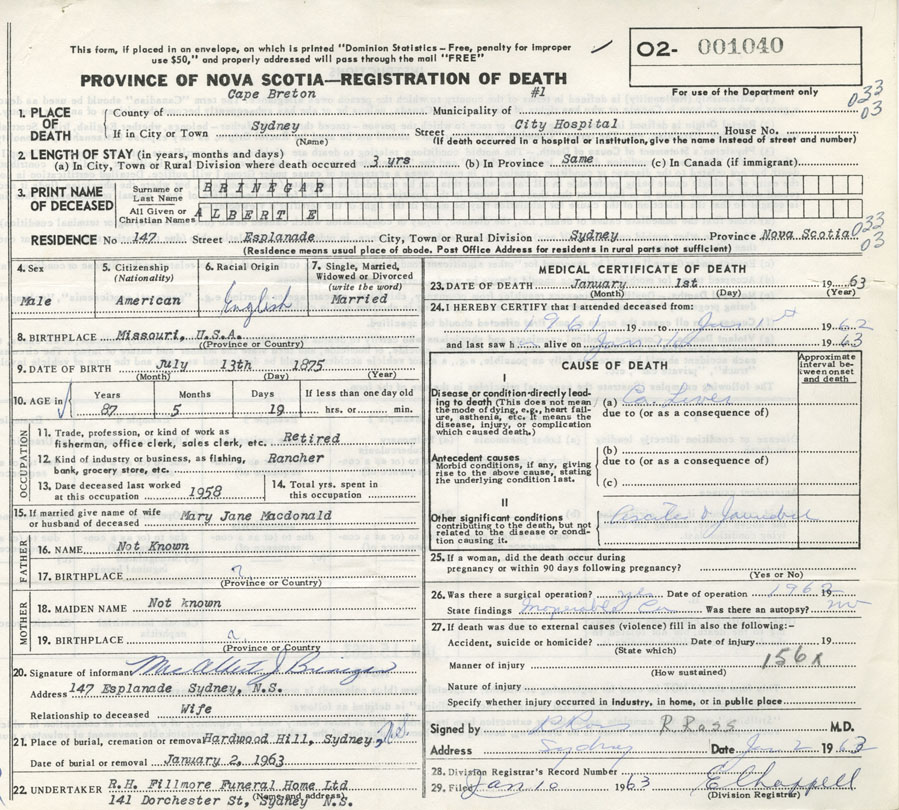 This form, if placed in an envelope, on which is printed "Dominion Statistics – Free, penalty for improper
use $50," and properly addressed will pass through the mail "FREE"
O2- 001040
PROVINCE OF NOVA SCOTIA—REGISTRATION OF DEATH
For use of the Department only
033
03
1. PLACE OF DEATH
County of Cape Breton Municipality of #1
If in City or Town Sydney Street City Hospital House No.
(Name) (If death occurred in a hospital or institution, give the name instead of street and number)
2. LENGTH OF STAY (in years, months and days)
(a) In City, Town or Rural Division where death occurred 3 yrs (b) In Province Same (c) In Canada (if immigrant)
3. PRINT NAME OF DECEASED
Surname or Last Name BRINEGAR
All Given or Christian Names ALBERT E
033
03
RESIDENCE No 147 Street Esplanade City, Town or Rural Division Sydney Province Nova Scotia
(Residence means usual place of abode. Post Office Address for residents in rural parts not sufficient)
4. Sex
Male
5. Citizenship
(Nationality)
American
6. Racial Origin
English
7. Single, Married,
Widowed or Divorced
(write the word)
Married
8. BIRTHPLACE Missouri, U.S.A.
(Province or Country)
9. DATE OF BIRTH July 13th 1875
(Month) (Day) (Year)
10. AGE in
Years Months Days If less than one day old
87 5 19 hrs. or min.
OCCUPATION
11. Trade, profession, or kind of work as
fisherman, office clerk, sales clerk, etc. Retired
12. Kind of industry or business, as fishing,
bank, grocery store, etc. Rancher
13. Date deceased last worked
at this occupation 1958
14. Total yrs. spent in
this occupation
15. If married give name of wife
or husband of deceased Mary Jane Macdonald
FATHER
16. NAME Not Known
17. BIRTHPLACE ?
(Province or Country)
MOTHER
18. MAIDEN NAME Not known
19. BIRTHPLACE ?
(Province or Country)
20. Signature of informant Mrs Albert J Brinegar
Address 147 Esplanade Sydney, N.S.
Relationship to deceased Wife
21. Place of burial, cremation or removal Hardwood Hill, Sydney,
Date of burial or removal January 2, 1963
22. UNDERTAKER R.H. Fillmore Funeral Home Ltd
(Name and address)
141 Dorchester St, Sydney N.S.
MEDICAL CERTIFICATE OF DEATH
23. DATE OF DEATH January 1st 19 63
(Month) (Day) (Year)
24. I HEREBY CERTIFY that I attended deceased from:
1961 19 to Jan 1st 1962
and last saw h alive on Jan 19 63
CAUSE OF DEATH
Approximate
interval be-
tween onset
and death
I
Disease or condition directly lead-
ing to death (This does not mean
the mode of dying, e.g., heart fail-
ure, asthenia, etc. It means the
disease, injury, or complication
which caused death.)
(a) Ca Liver
due to (or as a consequence of)
Antecedent causes
Morbid conditions, if any, giving
rise to the above cause, stating
the underlying condition last.
(b)
due to (or as a consequence of)
(c)
II
Other significant conditions
contributing to the death, but not
related to the disease or condi-
tion causing it.
Ascites & Jaundice
25. If a woman, did the death occur during
pregnancy or within 90 days following pregnancy?
(Yes or No)
26. Was there a surgical operation? yes Date of operation 1962 19
State findings Inoperable Ca Was there an autopsy? no
27. If death was due to external causes (violence) fill in also the following:–
Accident, suicide or homicide? Date of injury 19
(State which)
156X
Manner of injury
(How sustained)
Nature of injury
Specify whether injury occurred in Industry, in home, or in public place
Signed by R Ross M.D.
Address Sydney Date Jan 2 1963
28. Division Registrar's Record Number
29. Filed Jan 10 1963 E Chappell
(Division Registrar)